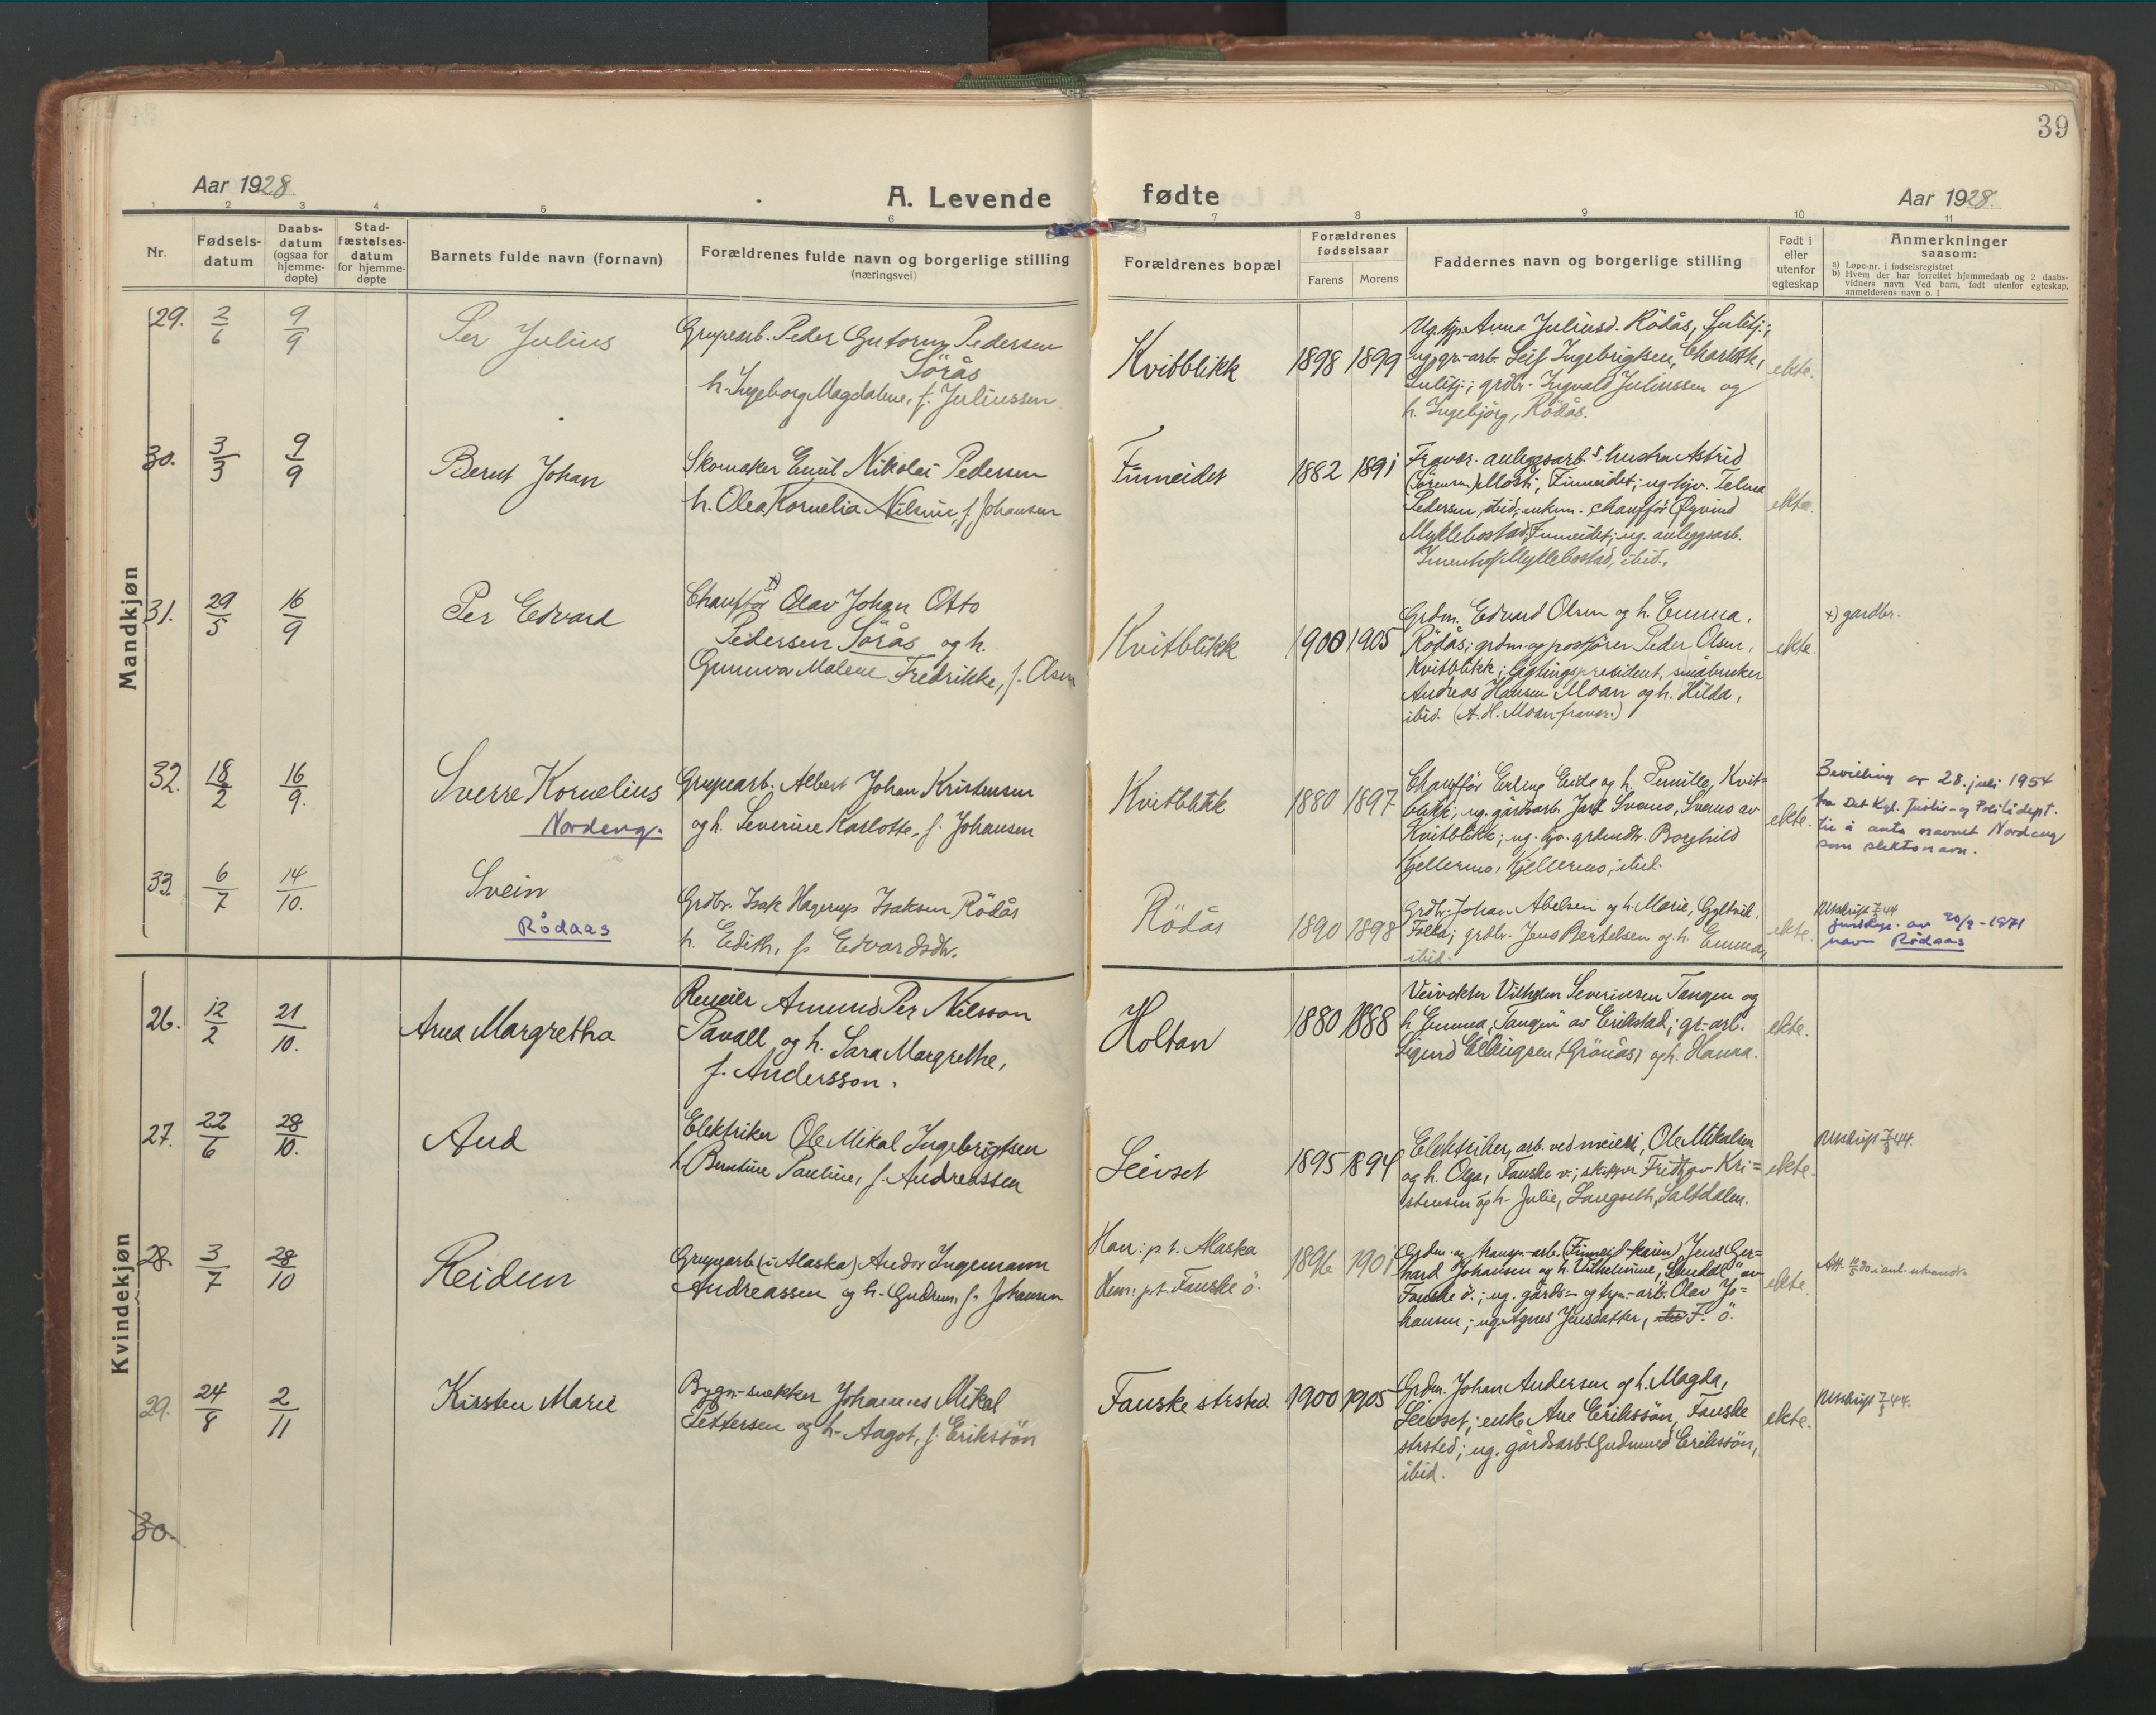 39
Aar 1928
A. Levende
fødte
Aar 1928.
1 2 3 4 5 6 7 8 9 10 11
Nr.
Fødsels-
datum
Daabs-
datum
(ogsaa for
hjemme-
døpte)
Stad-
fæstelses-
datum
for hjemme-
døpte
Barnets fulde navn (fornavn)
Forældrenes fulde navn og borgerlige stilling
(næringsvei)
Forældrenes bopæl
Forældrenes
fødselsaar
Farens Morens
Faddernes navn og borgerlige stilling
Født i
eller
utenfor
egteskap
Anmerkninger
saasom:
a) Løpe-nr. i fødselsregistret
b) Hvem der har forrettet hjemmedaab og 2 daabs-
vidners navn. Ved barn, født utenfor egteskap,
anmelderens navn o. l
Mandkjøn
29. 2/6 9/9
Per Julius
Grupearb. Peder Gutorm Pedersen
Sörås
h. Ingeborg Magdalene, f. Juliussen
Kvitblikk
1898 1899
Ug. tjp. Anna Juliusd. Rödås, Sulitj.;
ug. gr.-arb. Leif Ingebrigtsen, Charlotte,
Sulitj.; grdbr. Ingvald Juliussen og
h. Ingebjörg, Rödås.
ekte.
30. 3/3 9/9
Bernt Johan
Skomaker Emil Nikolai Pedersen
h. Olea Kornelia Nilsine, f. Johansen
Finneidet
1882 1891
Fravær. anleggsarb.s hustru Astrid
(Sörensen) Mosti, Finneidet; ug. hjv. Telma
Pedersen, ibid; enkem. chauffør Øyvind
Myklebostad, Finneidet; ug. anleggsarb.
Myklebostad, ibid.
ekte.
31. 29/5 16/9
Per Edvard
Chauffør x) Olav Johan Otto
Pedersen Sörås og h.
Gunnva Malene Fredrikke, f. Olsen
Kvitblikk
1900 1905
Grdm. Edvard Olsen og h. Emma,
Rödås; grdm og postfører Peder Olsen,
Kvitblikk; lagtingspresident, småbruker
Andreas Hansen Moan og h. Hilda,
ibid. (A. H. Moan fravær.)
ekte.
x) gardbr.
32. 18/2 16/9.
Sverre Kornelius
Nordeng.
Grupearb. Albert Johan Kristensen
og h. Severine Karlotte, f. Johansen
Kvitblikk
1880 1897
Chauffør Erling Eide og h. Pernille, Kvit=
blikk; ug. gårdsarb. Jarl Svemo, Svemo av
Kvitblikk; ug. tjv. grbrudtr. Borghild
Kjellermo, Kjellermo, ibid.
ekte.
Bevilling av 28. juli 1954
fra Det Kgl. Justis- og Politidept.
til å anta navnet Nordeng
som slektsnavn.
33. 6/7 14/10.
Svein
Rødaas
Grdbr. Isak Hagerup Isaksen Rödås
h. Edith, f. Edvardsdtr.
Rödås
1890 1898
Grdbr. Johan Abelsen og h. Marie, Gyltvik,
Folla; grdbr. Jens Bertelsen og h. Emma,
ibid.
ekte.
Utskrift 7/3 44
av 20/2-1971
navn Rødaas
Kvindekjøn
26. 12/2 21/10.
Anna Margretha
Reneier Amund Per Nilsson
Pavall og h. Sara Margrethe,
f. Andersson.
Holtan
1880 1888
Veivokter Vilhelm Severinsen Tangen og
h. Emma, "Tangen" av Erikstad; gr.-arb.
Sigurd Ellingsen, Grönås, og h. Hanna.
ekte.
27. 22/6 28/10.
Aud
Elektriker Ole Mikal Ingebrigtsen
h. Berntine Pauline, f. Andreassen
Leivset
1895 1894
Elektriker, arb. ved meieri, Ole Mikalsen
og h. Olga, Fauske v.; skipper Fridtjov Kri=
stensen og h. Julie, Langseth, Saltdalen.
ekte.
Utskrift 7/3 44.
28. 3/7 28/10
Reidun
Grupearb. (i Alaska) Andor Ingemann
Andreassen og h. Gudrun, f. Johansen
Han: p. t. Alaska
Hun: p. t. Fauske ö.
1896 1901
Grdm. og transp.-arb. (Finneid-kaien) Jens Ger=
hard Johansen og h. Vilhelmine, av
Fauske ö.; ug. gårds- og arb. Olav Jo=
hansen; ug. Agnes Jensdatter, F. ö.
ekte.
29. 24/8 2/11
Kirsten Marie
Bygn-snekker Johannes Mikal
Pettersen og h. Aagot, f. Eriksson
Fauske strsted
1900 1905
Grdm. Johan Andersen og h. Magda,
Leivset; enke Ane Eriksson, Fauske
strsted; ug. gårdsarb. Gudmund Eriksson,
ibid.
ekte.
Utskrift 7/3 44.
30.